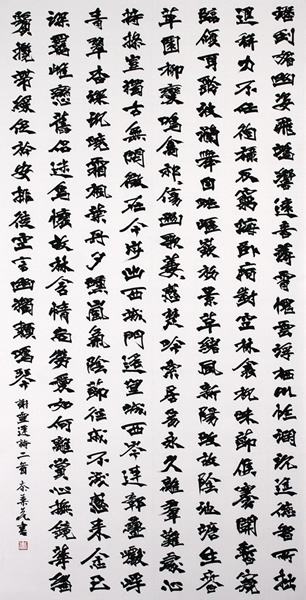 潛虬媚幽姿飛鴻響遠音薄霄愧雲浮棲川怍淵沉進德智所拙
退耕力不任徇祿反窮海臥痾對空林衾枕昧節候褰開暫窺
臨傾耳聆波瀾舉目眺嶇嶔初景革緒風新陽改故陰池塘生春
草園柳變鳴禽祁祁傷豳歌萋萋感楚吟索居易永久離羣難處心
持操豈獨古無悶徵在今步出西城門遙望城西岑連鄣疊巘崿
青翠杳深沉曉霜楓葉丹夕曛嵐氣陰節往慼不淺感來念已
深羈雌戀舊侶迷鳥懷故林含情尚勞愛如何離賞心撫鏡華緇
鬢攬帶緩促衿安排徒空言幽獨賴鳴琴
謝靈運詩二首